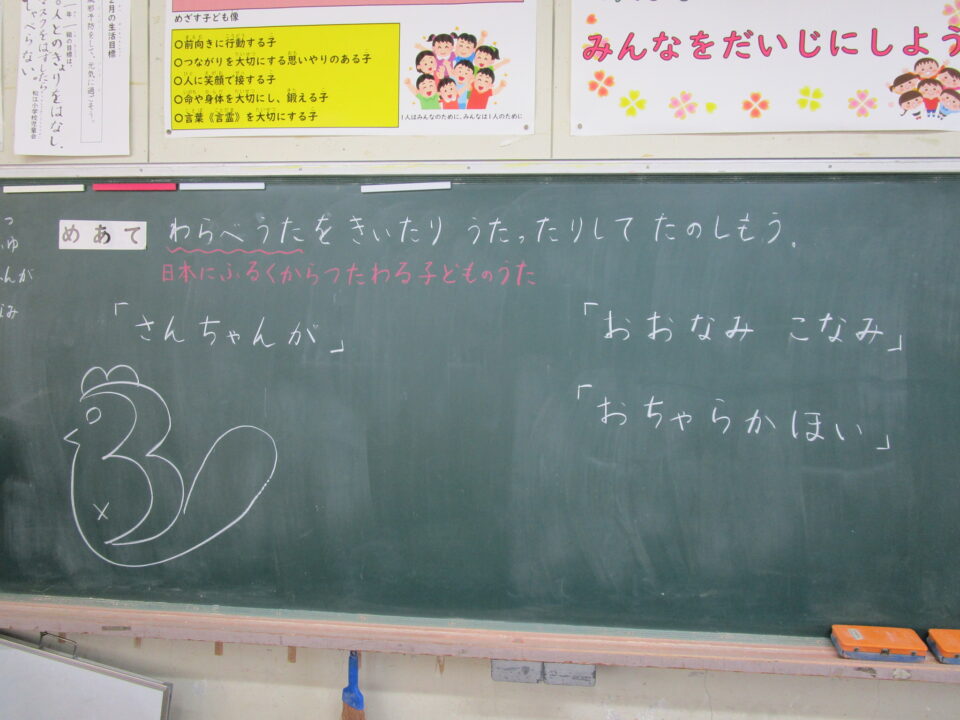 2月の生活目標
風邪予防をして、元気に過ごそう。
人とのきょりをはなし、
マスクをはずしたら
しゃべらない。
松江小学校児童会
めざす子ども像
〇前向きに行動する子
〇つながりを大切にする思いやりのある子
〇人に笑顔で接する子
〇命や身体を大切にし、鍛える子
〇言葉《言霊》を大切にする子
1人はみんなのために、みんなは1人のために
みんなをだいじにしよう
めあて
わらべうたをきいたり うたったりして たのしもう.
日本にふるくからつたわる子どものうた
「さんちゃんが」
「おおなみ こなみ」
「おちゃらかほい」